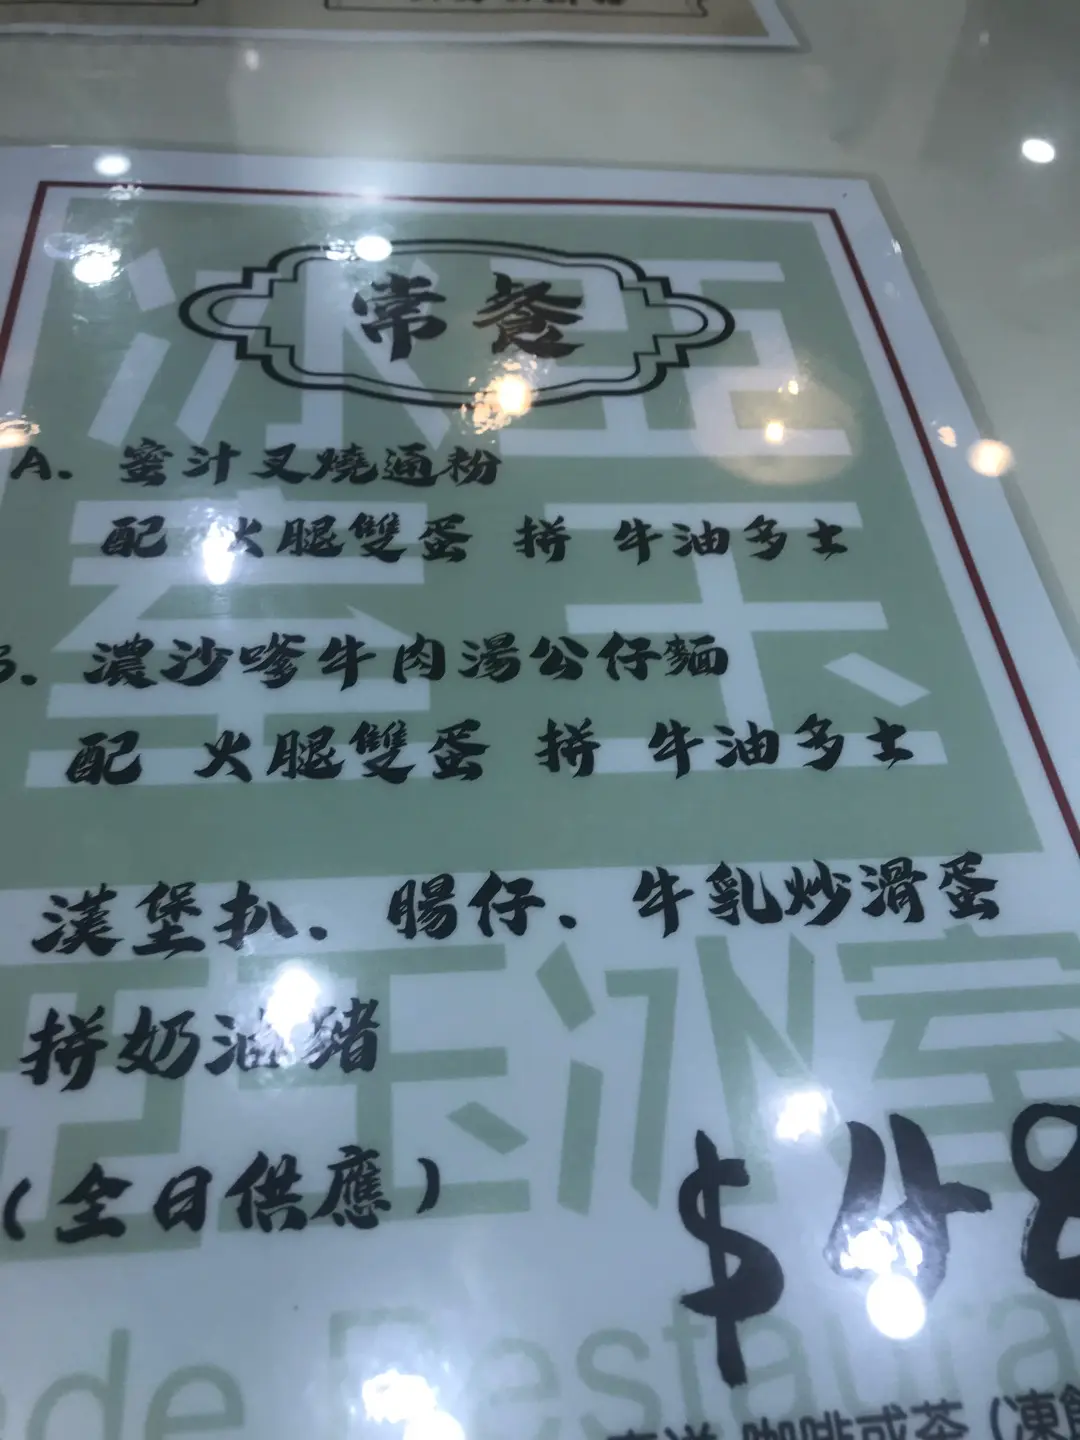 常餐
A. 蜜汁叉燒通粉
配 火腿雙蛋 拼 牛油多士
濃沙嗲牛肉湯公仔麵
配 火腿雙蛋 拼 牛油多士
漢堡扒、腸仔、牛乳炒滑蛋
拼奶油豬
(全日供應)
$48
咖啡或茶 (凍飲